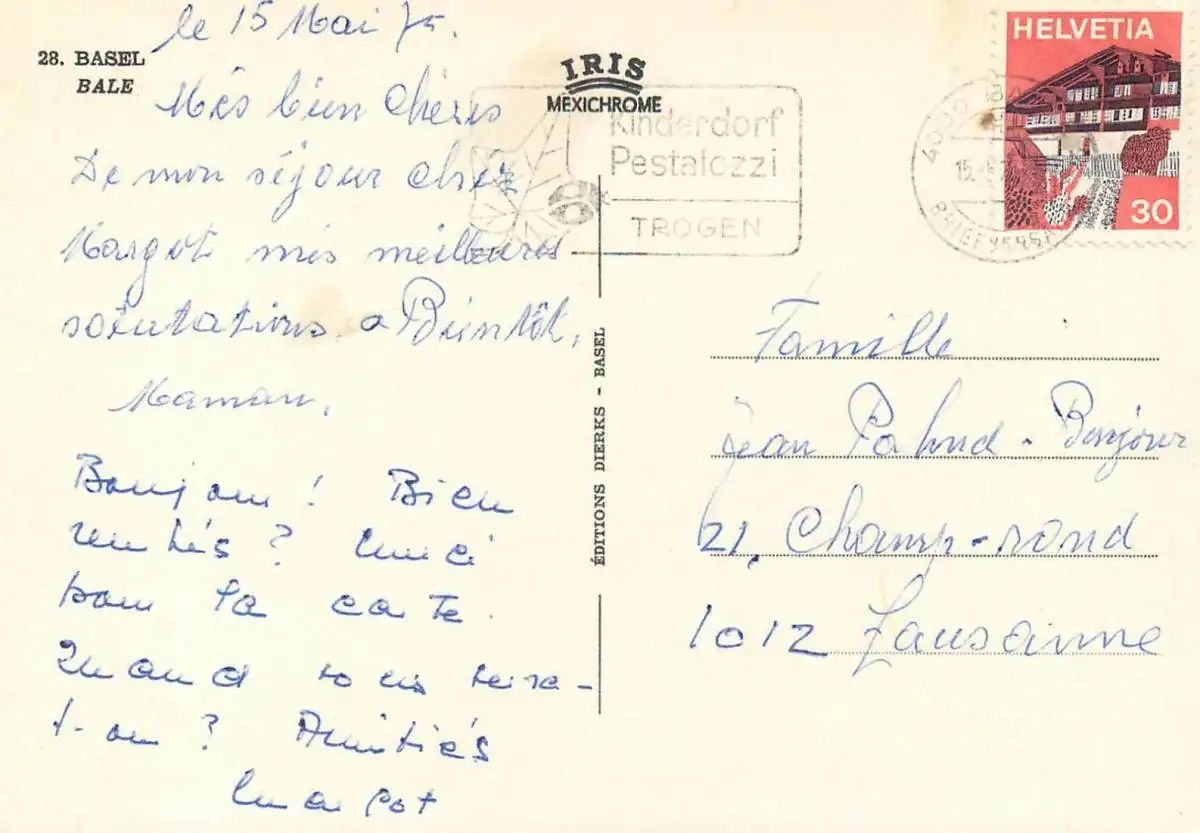 le 15 Mai 75.
28. BASEL
BALE
Mes bien chères
De mon séjour chez
Margot mes meilleures
salutations. a Bientôt,
Maman,
Bonjour ! Bien
rentrés ? Merci
pour ta carte.
Quand vous verra-
t-on ? Amitiés
Margot
IRIS
MEXICHROME
Kinderdorf
Pestalozzi
TROGEN
ÉDITIONS DIERKS - BASEL
HELVETIA
30
4000 BA
15.
BRIEFVERSA
Famille
Jean Pahud-Bonjour
21, Champ-rond
1012 Lausanne